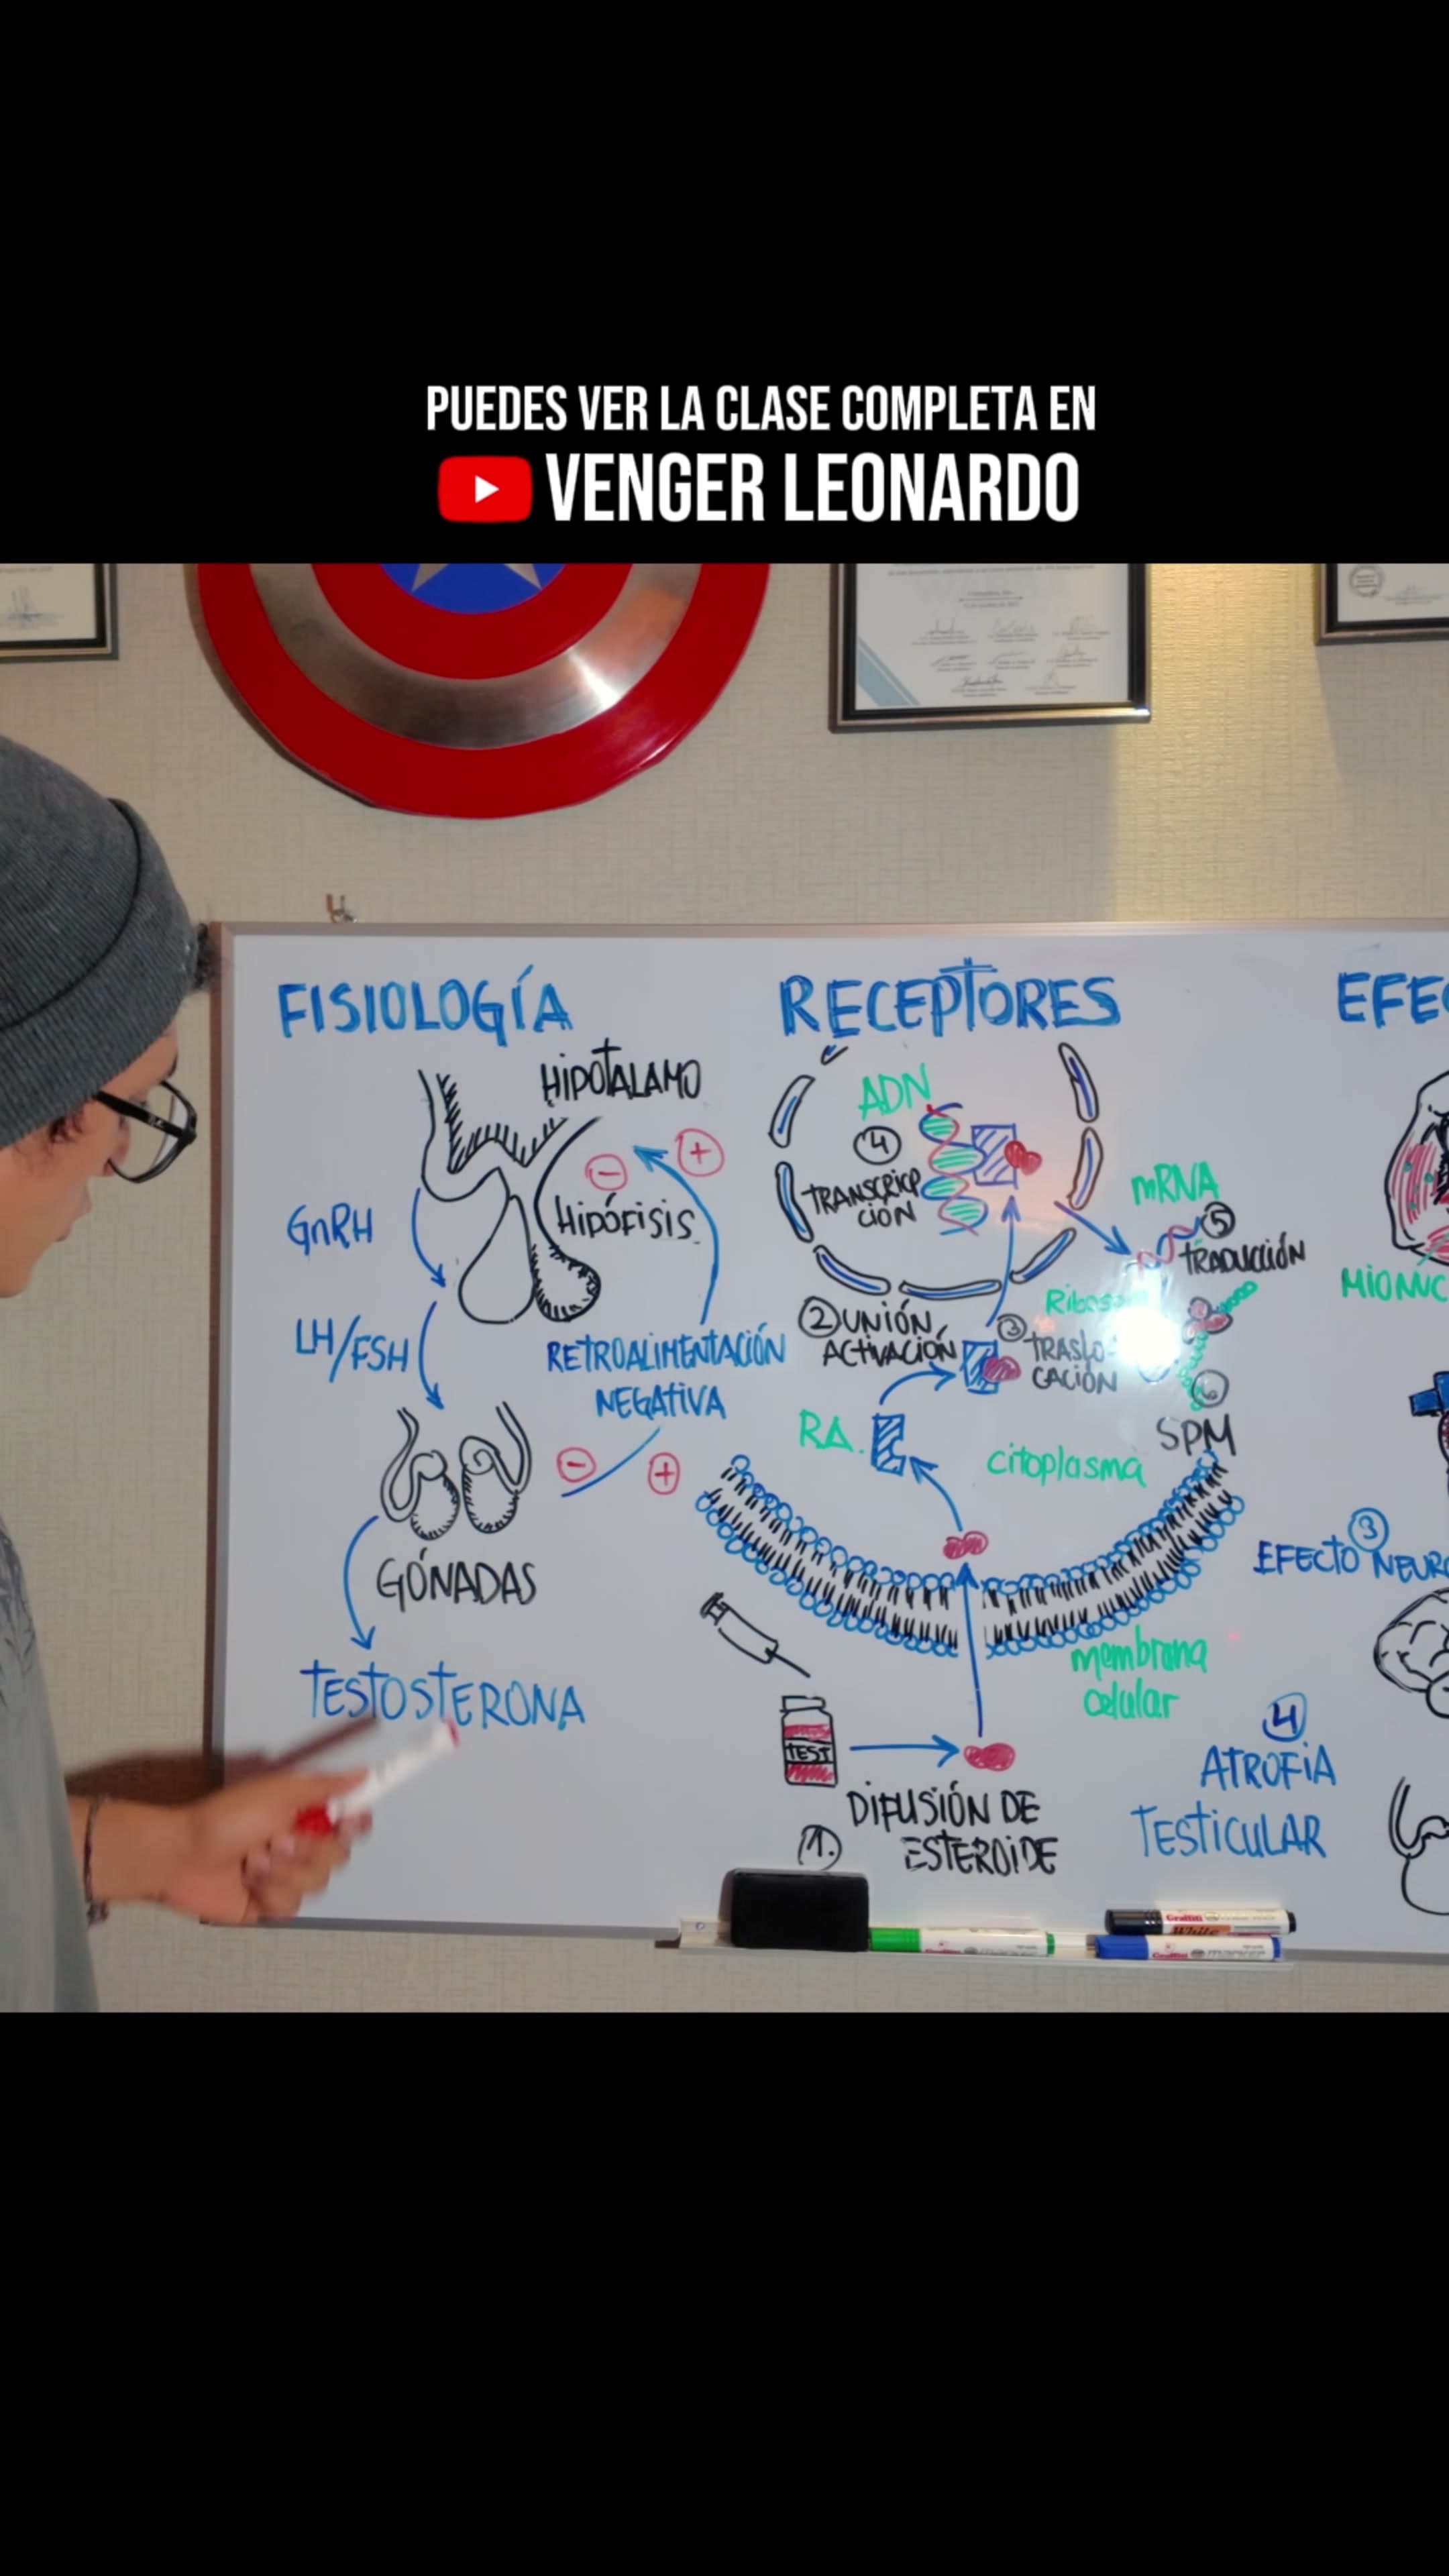 PUEDES VER LA CLASE COMPLETA EN
VENGER LEONARDO
FISIOLOGÍA
HIPOTALAMO
GnRH
HIPÓFISIS
LH/FSH
RETROALIMENTACIÓN
NEGATIVA
GÓNADAS
TESTOSTERONA
RECEPTORES
ADN
4
TRANSCRIP
CIÓN
mRNA
5
TRADUCCIÓN
2 UNIÓN
ACTIVACIÓN
3 TRASLO-
CACIÓN
6
SPM
RA.
citoplasma
membrana
celular
TEST
DIFUSIÓN DE
1. ESTEROIDE
3
4
ATROFIA
TESTICULAR
Graffiti